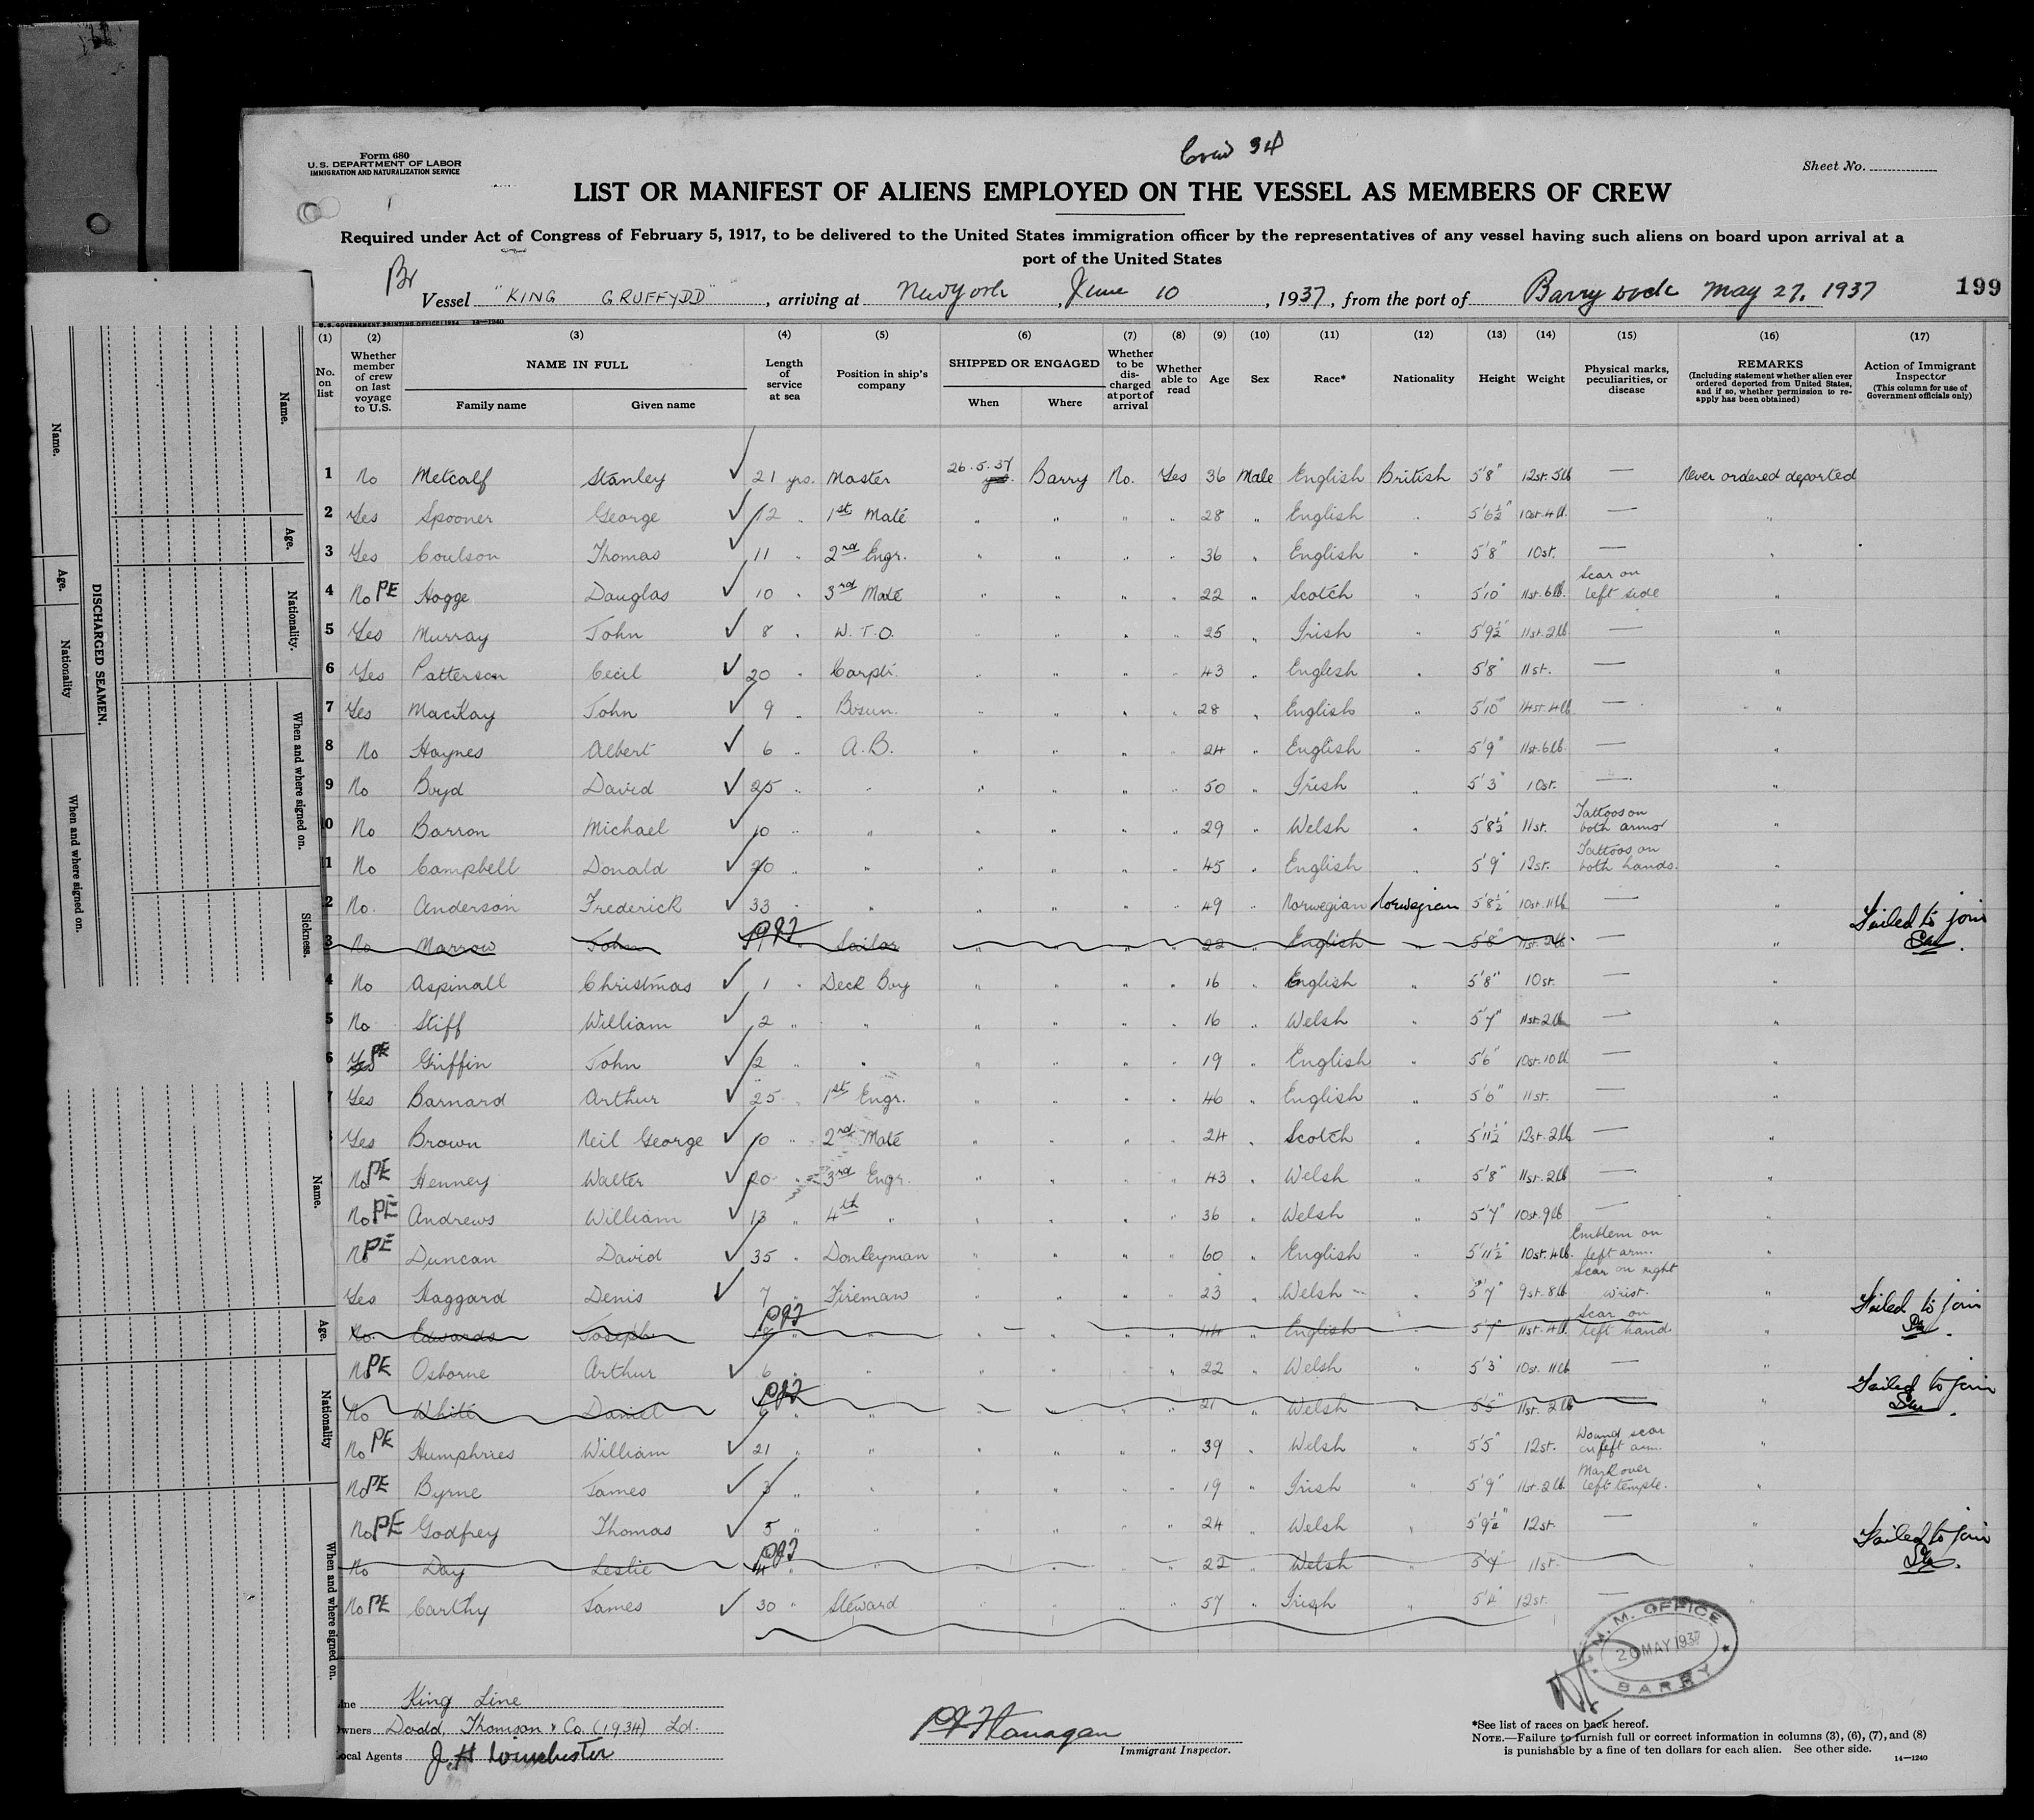 Form 680
U. S. DEPARTMENT OF LABOR
IMMIGRATION AND NATURALIZATION SERVICE
Crew 34
Sheet No.
LIST OR MANIFEST OF ALIENS EMPLOYED ON THE VESSEL AS MEMBERS OF CREW
Required under Act of Congress of February 5, 1917, to be delivered to the United States immigration officer by the representatives of any vessel having such aliens on board upon arrival at a
port of the United States
Br
Vessel "KING GRUFFYDD", arriving at New York, June 10, 1937, from the port of Barry Dock May 27. 1937
199
U.S. GOVERNMENT PRINTING OFFICE: 1934 14—1240
(1) (2) (3) (4) (5) (6) (7) (8) (9) (10) (11) (12) (13) (14) (15) (16) (17)
No. on list
Whether member of crew on last voyage to U.S.
NAME IN FULL
Family name
Given name
Length of service at sea
Position in ship's company
SHIPPED OR ENGAGED
When
Where
Whether to be discharged at port of arrival
Whether able to read
Age
Sex
Race*
Nationality
Height
Weight
Physical marks, peculiarities, or disease
REMARKS
(Including statement whether alien ever ordered deported from United States, and if so, whether permission to reapply has been obtained)
Action of Immigrant Inspector
(This column for use of Government officials only)
1 No Metcalf Stanley ✓ 21 yrs. Master 26.5.37 Barry No. Yes 36 Male English British 5'8" 12st. 5lb — Never ordered deported
2 Yes Spooner George ✓ 12 " 1st Mate " " " " 28 " English " 5'6½" 10st. 4lb. — "
3 Yes Coulson Thomas ✓ 11 " 2nd Engr. " " " " 36 " English " 5'8" 10st. — "
4 No PE Hogge Douglas ✓ 10 " 3rd Mate " " " " 22 " Scotch " 5'10" 11st. 6lb. Scar on left side "
5 Yes Murray John ✓ 8 " W.T.O. " " " " 25 " Irish " 5'9½" 11st. 2lb — "
6 Yes Patterson Cecil ✓ 20 " Carptr. " " " " 43 " English " 5'8" 11st. — "
7 Yes MacKay John ✓ 9 " Bosun. " " " " 28 " English " 5'10" 14st. 4lb — "
8 No Haynes Albert ✓ 6 " A.B. " " " " 24 " English " 5'9" 11st. 6lb. — "
9 No Boyd David ✓ 25 " " " " " " 50 " Irish " 5'3" 10st. — "
10 No Barron Michael ✓ 10 " " " " " " 29 " Welsh " 5'8½" 11st. Tattoos on both arms "
11 No Campbell Donald ✓ 20 " " " " " " 45 " English " 5'9" 12st. Tattoos on both hands. "
2 No. Anderson Frederick ✓ 33 " " " " " " 49 " Norwegian Norwegian 5'8½" 10st. 11lb — "
3 No Marrow John Sailor " " " " 22 " English " 5'8" 11st. 2lb — " Failed to join
4 No Aspinall Christmas ✓ 1 " Deck Boy " " " " 16 " English " 5'8" 10st. — "
5 No Stiff William ✓ 2 " " " " " " 16 " Welsh " 5'7" 11st. 2lb — "
6 Yes PE Griffin John ✓ 2 " " " " " " 19 " English " 5'6" 10st. 10lb — "
7 Yes Barnard Arthur ✓ 25 " 1st Engr. " " " " 46 " English " 5'6" 11st. — "
Yes Brown Neil George ✓ 10 " 2nd Mate " " " " 24 " Scotch " 5'11½" 12st. 2lb — "
No PE Henney Walter ✓ 20 " 3rd Engr. " " " " 43 " Welsh " 5'8" 11st. 2lb — "
No PE Andrews William ✓ 13 " 4th " " " " " 36 " Welsh " 5'7" 10st. 9lb — "
No PE Duncan David ✓ 35 " Donkeyman " " " " 60 " English " 5'11½" 10st. 4lb. Emblem on left arm. "
Yes Haggard Denis ✓ 7 " Fireman " " " " 23 " Welsh " 5'7" 9st. 8lb Scar on right wrist. "
No. Edwards Joseph " " " " " 44 " English " 5'7" 11st. 4lb Scar on left hand. " Failed to join
No PE Osborne Arthur ✓ 6 " " " " " " 22 " Welsh " 5'3" 10st. 11lb — "
No White Daniel " " " " " " 21 " Welsh " 5'5" 11st. 2lb " Failed to join
No PE Humphries William ✓ 21 " " " " " " 39 " Welsh " 5'5" 12st. Wound scar on left arm. "
No PE Byrne James ✓ 3 " " " " " " 19 " Irish " 5'9" 11st. 2lb Mark over left temple. "
No PE Godfrey Thomas ✓ 5 " " " " " " 24 " Welsh " 5'9½" 12st. — "
No Day Leslie 4 " " " " " " 22 " Welsh " 5'7" 11st. " Failed to join
No PE Carthy James ✓ 30 " Steward " " " " 57 " Irish " 5'4" 12st. — "
M. M. OFFICE
20 MAY 1937
BARRY
Line King Line
Owners Dodd, Thomson & Co. (1934) Ld.
Local Agents J. H. Winchester
P J Flanagan
Immigrant Inspector.
*See list of races on back hereof.
NOTE.—Failure to furnish full or correct information in columns (3), (6), (7), and (8)
is punishable by a fine of ten dollars for each alien. See other side.
14—1240
DISCHARGED SEAMEN.
Name.
Age.
Nationality
When and where signed on.
Name.
Age.
Nationality.
When and where signed on.
Sickness.
Name.
Age.
Nationality
When and where signed on.